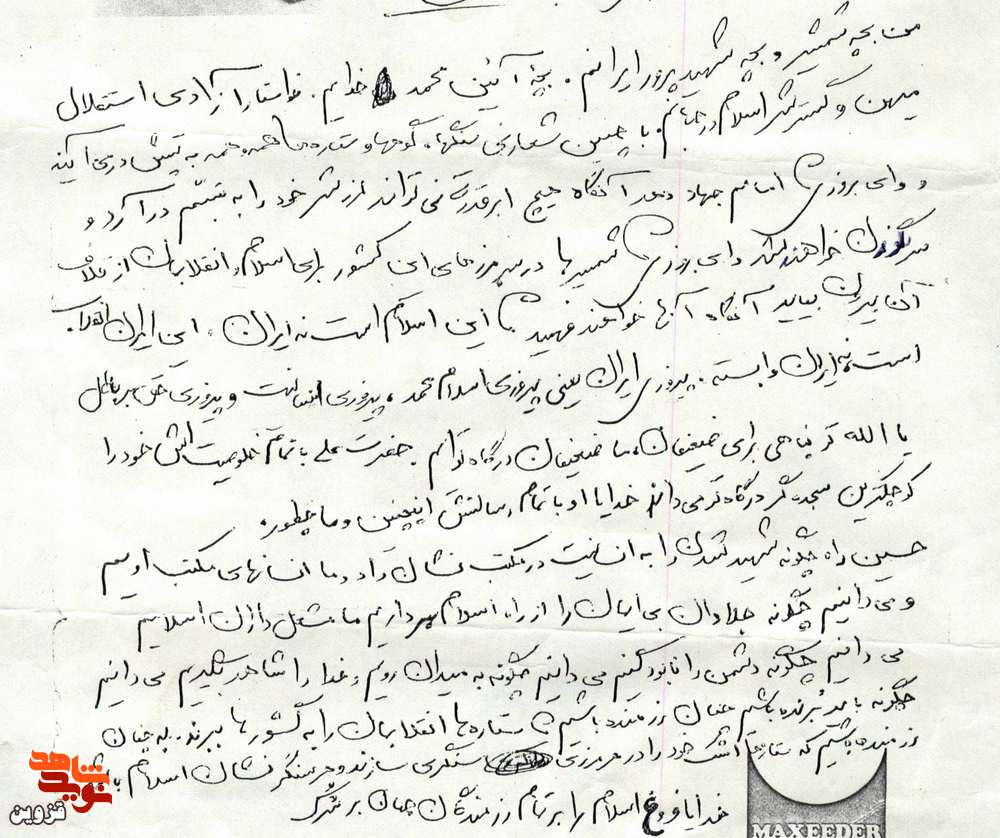 من بچه شمشیر و بچه شهید پرور ایرانم. بچهٔ آئین محمد خدایم. خواستار آزادی استقلال
میهن و گسترش اسلام در جهانم. با چنین شعاری سنگها، کوهها و ستاره‌ها همه و همه به تپش در می آیند
و وای بروزی امامم جهاد دهد آنگاه هیچ ابرقدرتی نمی تواند لرزش خود را به تبسّم در آورد و
سرنگون خواهند شد وای بروزی شمشیرها در سر مرزهای این کشور برای اسلام و انقلابمان از غلاف
آن بیرون بیاید آنگاه آنها خواهند فهمید این اسلام است نه ایران، این ایران انقلاب
است نه ایران وابسته. پیروزی ایران یعنی پیروزی اسلام محمد، پیروزی انسانیت و پیروزی حق بر باطل
یا الله تو پناهی برای ضعیفان، ما ضعیفان درگاه توایم. حضرت علی با تمام خصوصیت‌اش خود را
کوچکترین سجده‌گر درگاه تو می داند خدایا او با تمام رسالتش اینچنین و ما چطور
حسین راه چگونه شهید شدن را به انسانیت در مکتب نشان داد و ما انسانهای مکتب اوییم
و می دانیم چگونه جلادان بی ایمان را از راه اسلام برداریم ما مشعل داران اسلامیم
می دانیم چگونه دشمن را نابود کنیم می دانیم چگونه به میدان رویم و خدا را شاهد بگیریم می دانیم
چگونه باید بُرنده باشیم چنان رزمنده باشیم تا ستاره‌ها انقلابمان را به کشورها ببرند. چنان
رزمنده باشیم که ستارها اشک خود را در هر مرزی سنگری سازند و هر سنگر نشان اسلام باشد
خدایا فروغ اسلام را بر تمام رزمندگان جهان بر
شاهد
نوید
قزوین
MAXEEDER